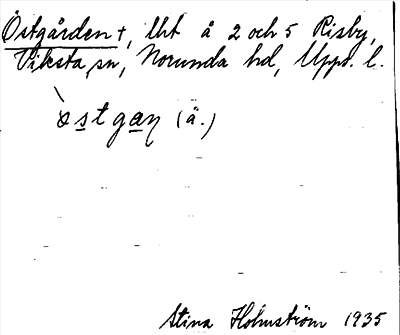 Östgården †, lht å 2 och 5 Risby,
Viksta sn, Norunda hd, Upps. l.
ö̀stgaɲ (ä.)
Stina Holmström 1935